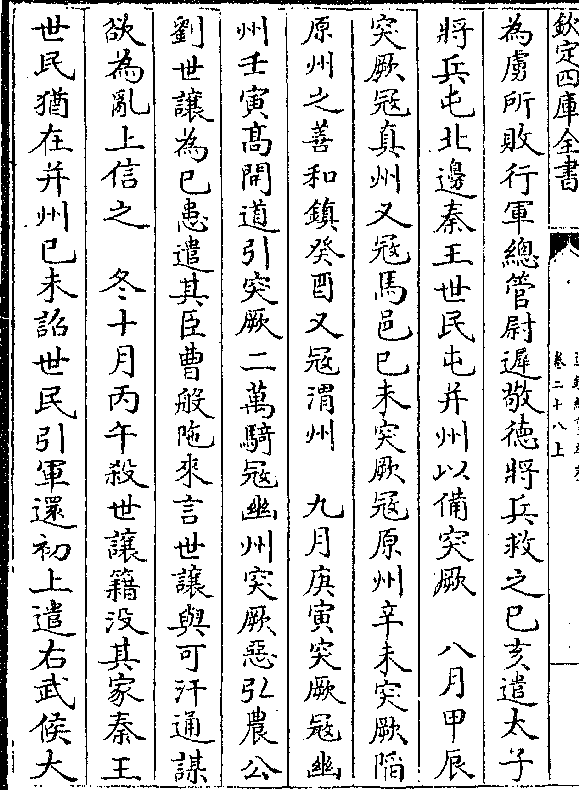 欽定四庫全書
卷二十八上
為虜所敗行軍總管尉遲敬德將兵救之已亥遣太子
將兵屯北邊秦王世民屯并州以備突厥　八月甲辰
突厥冦真州又冦馬邑已未突厥冦原州辛未突厥陷
原州之善和鎮癸酉又冦渭州　九月庚寅突厥冦幽
州壬寅髙開道引突厥二萬騎冦幽州突厥惡弘農公
劉世讓為已患遣其臣曹般陁來言世讓與可汗通謀
欲為亂上信之　冬十月丙午殺世讓籍没其家秦王
世民猶在并州已未詔世民引軍還初上遣右武候大